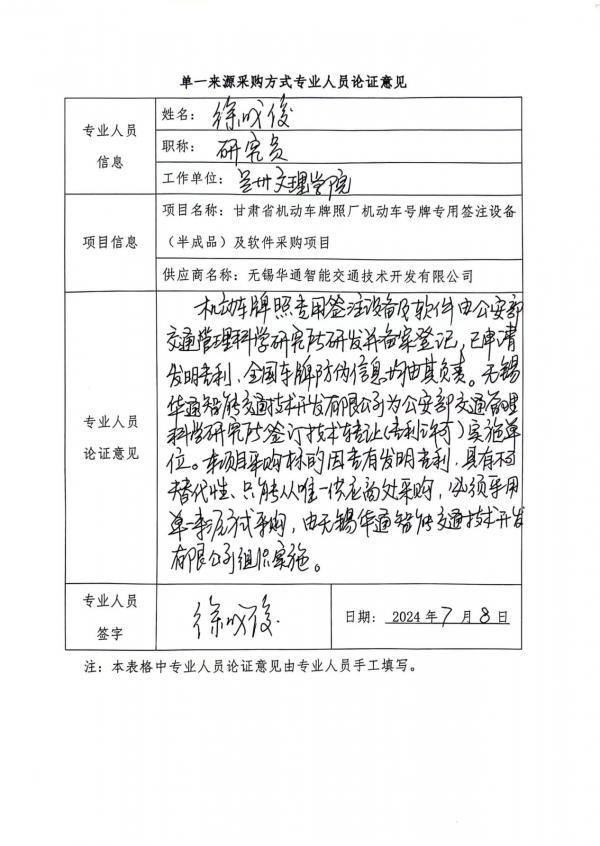 单一来源采购方式专业人员论证意见
专业人员
信息
姓名：徐成俊
职称：研究员
工作单位：兰州文理学院
项目信息
项目名称：甘肃省机动车牌照厂机动车号牌专用签注设备
（半成品）及软件采购项目
供应商名称：无锡华通智能交通技术开发有限公司
专业人员
论证意见
机动车牌照专用签注设备及软件由公安部
交通管理科学研究所研发并备案登记，已申请
发明专利，全国车牌防伪信息均由其负责。无锡
华通智能交通技术开发有限公司为公安部交通管理
科学研究所签订技术转让（专利许可）实施单
位。本项目采购标的因专有发明专利，具有不可
替代性、只能从唯一供应商处采购，必须采用
单一来源方式采购，由无锡华通智能交通技术开发
有限公司组织实施。
专业人员
签字
徐成俊
日期：2024年7月8日
注：本表格中专业人员论证意见由专业人员手工填写。